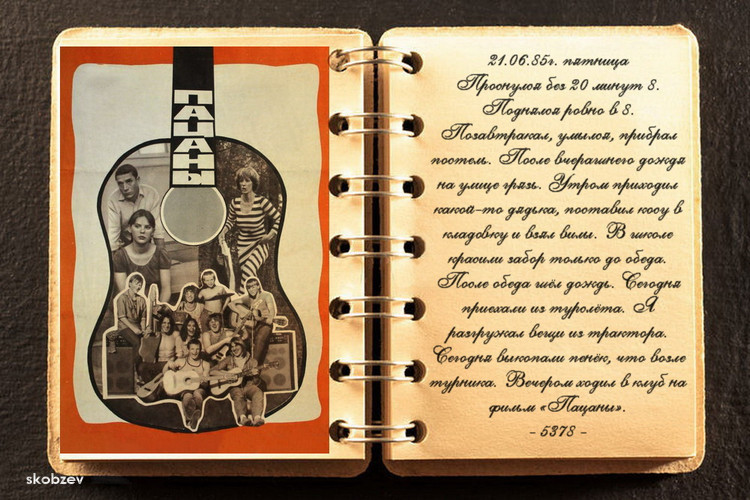 ПАЦАНЫ
21.06.85г. пятница
Проснулся без 20 минут 8.
Поднялся ровно в 8.
Позавтракал, умылся, прибрал
постель. После вчерашнего дождя
на улице грязь. Утром приходил
какой-то дядька, поставил косу в
кладовку и взял вилы. В школе
красили забор только до обеда.
После обеда шёл дождь. Сегодня
приехали из турслёта. Я
разгружал вещи из трактора.
Сегодня выкопали пенёк, что возле
турника. Вечером ходил в клуб на
фильм «Пацаны».
- 5378 -
skobzev